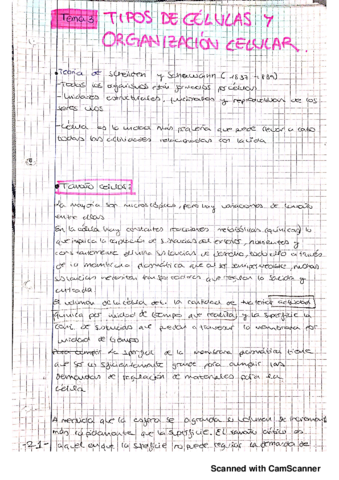 Tema 3
TIPOS DE CÉLULAS Y
ORGANIZACIÓN CELULAR.
Teoría de Schleiden y Schwann (1837-1839)
-Todos los organismos están formados por células
-Unidades estructurales, funcionales y reproductivas de los
seres vivos
-Célula es la unidad más pequeña que puede llevar a cabo
todas las actividades relacionadas con la vida
Tamaño celular:
La mayoría son microscópicas, pero hay variaciones de tamaño
entre ellas
En la célula hay constantes reacciones metabólicas (químicas) lo
que implica la captación de sustancias del exterior, nutrientes y
de desecho, todo ello a través
de la membrana plasmática que al ser semipermeable, muchas
sustancias necesitan transportadores que regulan la salida y
entrada.
El volumen de la célula det. la cantidad de actividad
química por unidad de tiempo que realiza y la superficie la
cant. de sustancias que puedan atravesar la membrana por
unidad de tiempo
la superficie de la membrana plasmática tiene
que ser lo suficientemente grande para cumplir las
demandas de regulación de materiales para la
célula
A medida que la célula se agranda su volumen se incrementa
más rápidamente que la superficie. El tamaño crítico es
aquel en que la superficie no puede regular la demanda de
-21-
Scanned with CamScanner